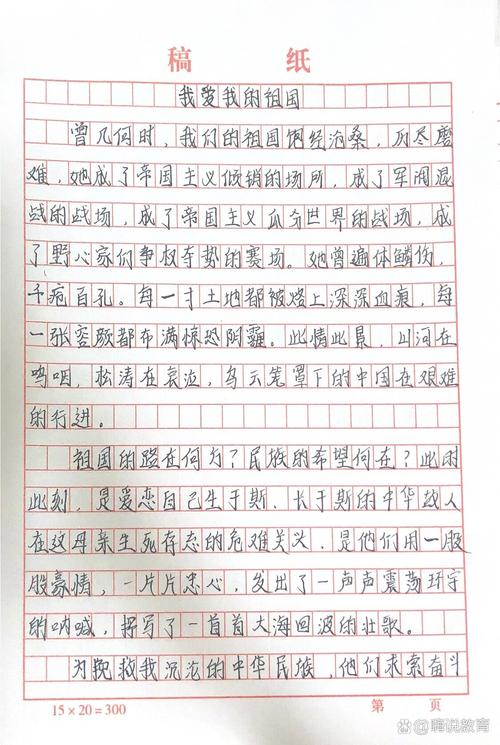 稿 纸
我爱我的祖国
曾几何时，我们的祖国饱经沧桑，历尽磨
难，她成了帝国主义倾销的场所，成了军阀混
战的战场，成了帝国主义瓜分世界的战场，成
了野心家们争权夺势的赛场。她曾遍体鳞伤，
千疮百孔。每一寸土地都被烙上深深血痕，每
一张容颜都布满惊恐阴霾。此情此景，山河在
呜咽，松涛在哀泣，乌云笼罩下的中国在艰难
的行进。
祖国的路在何方？民族的希望何在？此时
此刻，是爱恋自己生于斯、长于斯的中华战人
在这母亲生死存态的危难关头，是他们用一股
股豪情，一片片忠心，发出了一声声震荡环宇
的呐喊，挥写了一首首大海回波的壮歌。
为挽救我沉沦的中华民族，他们求索奋斗
15×20=300 第 页
嗨说教育